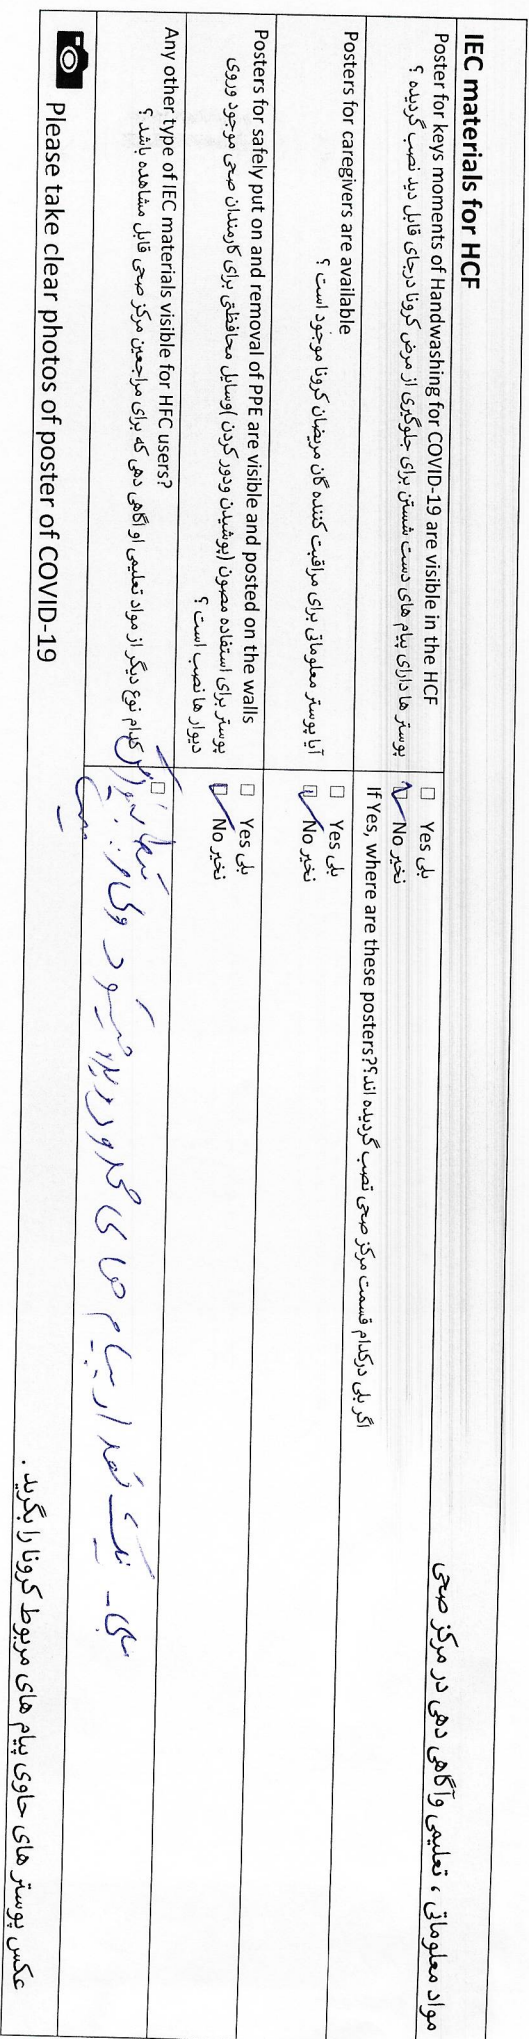 IEC materials for HCF
مواد معلوماتی ، تعلیمی وآگاهی دهی در مرکز صحی
Poster for keys moments of Handwashing for COVID-19 are visible in the HCF
پوستر ها دارای پیام های دست شستن برای جلوگیری از مرض کرونا درجای قابل دید نصب گردیده ؟
☐ Yes بلی
☐ No نخیر
If Yes, where are these posters??اگر بلی درکدام قسمت مرکز صحی نصب گردیده اند
Posters for caregivers are available
آیا پوستر معلوماتی برای مراقبت کننده گان مریضان کرونا موجود است ؟
☐ Yes بلی
☐ No نخیر
Posters for safely put on and removal of PPE are visible and posted on the walls
پوستر برای استفاده مصون (پوشیدن ودور کردن )وسایل محافظتی برای کارمندان صحی موجود وروی
دیوار ها نصب است ؟
☐ Yes بلی
☐ No نخیر
Any other type of IEC materials visible for HFC users?
کدام نوع دیگر از مواد تعلیمی او اگاهی دهی که برای مراجعین مرکز صحی قابل مشاهده باشد ؟
☐
بلی یک تعداد پیام های
Please take clear photos of poster of COVID-19
عکس پوستر های حاوی پیام های مربوط کرونا را بگرید .